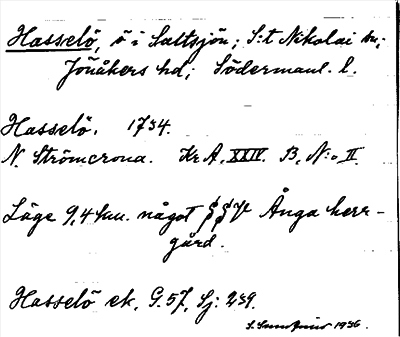 Hasselö, ö i Saltsjön; S:t Nikolai sn;
Jönåkers hd; Södermanl. l.
Hasselö. 1734.
N. Strömcrona. Kr A. XXIV. B. N:o II.
Läge 9,4 km. något S§V Ånga herr-
gård.
Hasselö ek. G. 57, Sj: 239.
1936.